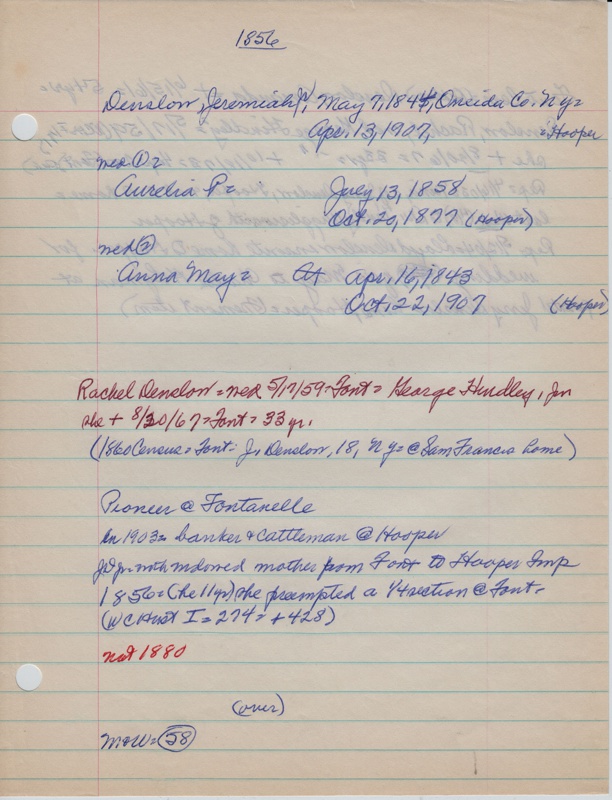 1856
Denslow, Jeremiah Jr, May 7, 1844, Oneida Co. Ny=
Apr. 13, 1907, =Hooper
wed ①=
Aurelia P= July 13, 1858
Oct. 20, 1877 (Hooper)
wed ②
Anna May= At Apr. 16, 1843
Oct. 22, 1907 (Hooper)
Rachel Denslow = wed 5/17/59 = Font = George Hindley, Jm
she + 8/30/67 = Font = 33 yr.
(1860 Census = Font = J. Denslow, 18, NY = @ Sam Francis home)
Pioneer @ Fontanelle
In 1903 = banker & Cattleman @ Hooper
JD jr. with widowed mother from Font to Hooper Twp
1856 = (he 11 yr) she preempted a 1/4 section @ Font =
(WC Hist I = 274 = + 428)
not 1880
(over)
M&W = 58